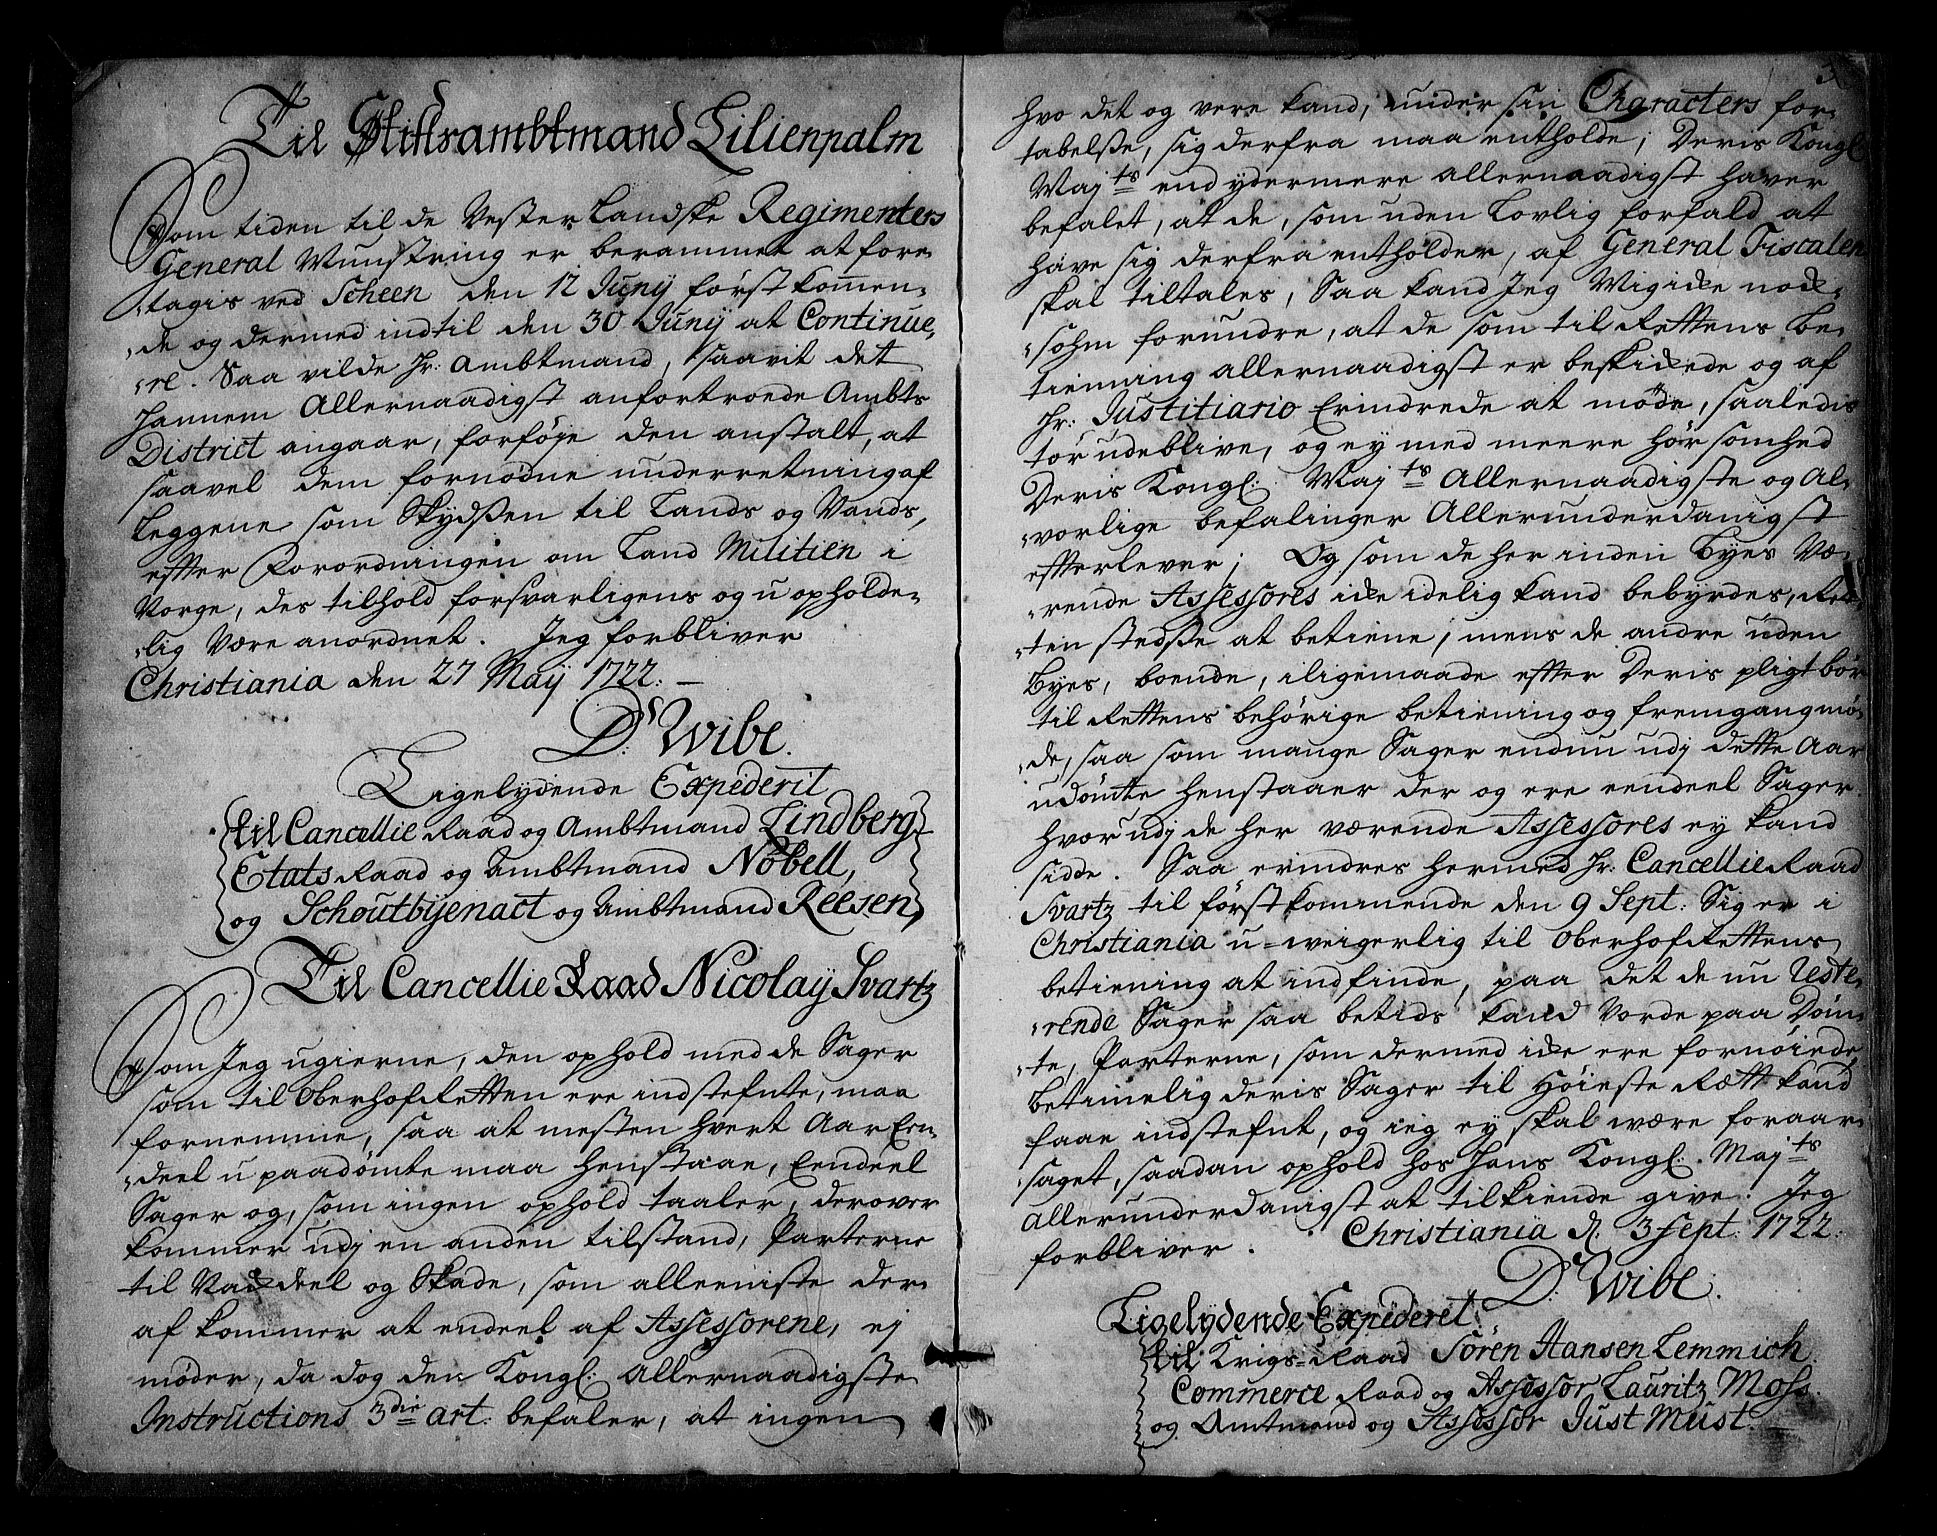 Til Stiftsambtmand Lilienpalm
Som tiden til de Vester Landske Regimenters
General Munstring er berammet at fore,
,tagis ved Scheen den 12 Junij förstkommen,
,de og dermed indtil den 30 Junij at Continue,
,re. Saa vilde Hr: Ambtmand, saavit det
hannem Allernaadigst anfortroede Ambts
District angaar, forföje den anstalt, at
saavel dem fornödne underretning af
Leggene som Skydßen til Lands og Vands,
effter Forordningen om Land Militien i
Norge, des tilhold forsvarligens og u opholde,
,lig være anordnet. Jeg forbliver
Christiania den 27 Maij 1722: –
D: Wibe.
Ligelydende Expederit
til Cancellie Raad og Ambtmand Lindberg
Etats Raad og Ambtmand Nobell,
og Schoutbijenact og Ambtmand Reesen,
Til Cancellie Raad Nicolaij Svartz
Som Jeg ugierne, den ophold med de Sager
som til OberhofRetten ere indstefnte, maa
fornemme, saa at mesten hvert Aar Een,
,deel u paadömte maa henstaae, Eendeel
Sager og, som ingen ophold taaler, derover
kommer udj en anden tilstand, Parterne
til Nadeel og Skade, som alleeniste der,
af kommer at endeel af Assessorene, ej
möder, da dog den Kongl: Allernaadigste
Instructions 3die art: befaler, at ingen
3
hvo det og vere kand, under sin Characters for,
tabelße, sig derfra maa entholde; Deris Kongl:
Maj ts end ydermere allernaadigst haver
befalet, at de, som uden Lovlig forfald at
have sig derfra entholder, af General Fiscalen
skal tiltales, Saa kand Jeg Migicke nock,
,sohm forundre, at de som til Rettens be,
tienning allernaadigst er beskickede og af
Hr: Justitiario Erindrede at möde, saaledis
tör udeblive, og ey med meere hörsomhed
Deris Kongl: Maj ts Allernaadigste og Al,
,vorlige befalinger Allerunderdanigst
effterlever; Og som de her inden Byes Væ,
,rende Assessores icke idelig kand bebyrdes, Ret
,ten stedße at betiene; mens de andre uden
Byes, boende, iligemaade effter Deris pligt bör
til Rettens behörige betiening og fremgang mö,
,de, saa som mange Sager endnu udj dette Aar
udömte henstaaer der og ere eendeel Sager
hvor udj de her værende Assessores ey kand
sidde. Saa erindres hermed Hr: Cancellie Raad
Svartz til förstkommende den 9 Sept: Sig er i
Christiania u=weigerlig til OberhofRettens
betiening at indfinde, paa det de nu Reste,
,rende Sager saa betids kand Vorde paa Döm,
,te, Parterne, som dermed icke ere fornöiede,
betimelig deris Sager til Höieste Rætt kand
faae indstefnt, og ieg ey skal wære foraar,
,saget, saadan ophold hos Hans Kongl: Maj ts
allerunderdanigst at tilkiende give. Jeg
forbliver. Christiania d. 3 Sept: 1722:
D: Wibe.
Ligelydende Expederet.
til Krigs=Raad Sören Hansen Lemmich
Commerce Raad og Assessor Lauritz Moss.
og Amtmand og Assessor Just Must.